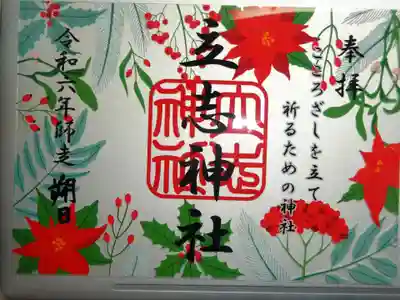 奉拝
こころざしを立て
祈るための神社
立志神社
立志神社
令和六年師走朔日